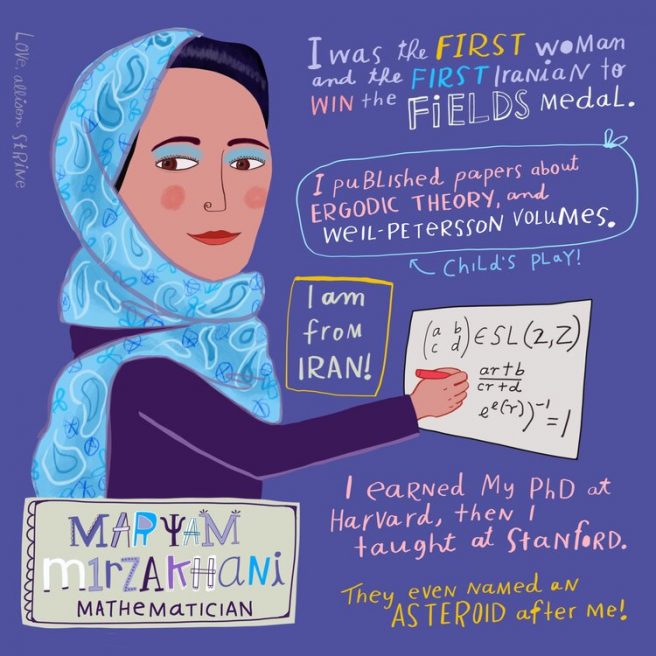 Love, allison strine
I was the FIRST woMan
and the FIRST IraniaN to
WIN the FiELDS Medal.
I puBLished papers about
ERGODIC THEORY, and
WEIL-PETERSSON VOLUMES.
CHILD'S PLAY!
I am
from
IRAN!
(a b
c d) ∈ SL(2,Z)
ar+b
cr+d
e^e(-r))^-1=1
I eaRNed My PhD at
Harvard, then I
taught at StanFoRD.
They even NaMed aN
ASTEROID after Me!
MARΨAM
m1rZAKHaNi
MATHEMATICIAN